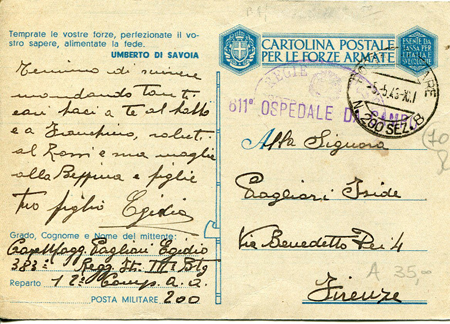 Temprate le vostre forze, perfezionate il vo-
stro sapere, alimentate la fede.
UMBERTO DI SAVOIA
Termino di
mandando tanti
cari baci a te al babbo
e a Franchino, saluti
al Rossi e sua moglie
alla Beppina e figlie
tuo figlio Egidio
Grado, Cognome e Nome del mittente:
Pagliari Egidio
383° Regg. Ftr. III° Btg
Reparto 12° Comp. A. A.
POSTA MILITARE 200
CARTOLINA POSTALE
PER LE FORZE ARMATE
ESENTE DA
TASSA PER
L'ITALIA E
COLONIE
REGIE
811° OSPEDALE DA CAMPO
5.5.43-XXI
N. 200 SEZ. B
Alla Signora
Pagliari Iside
Via Benedetto Dei 4
Firenze
A 35,00